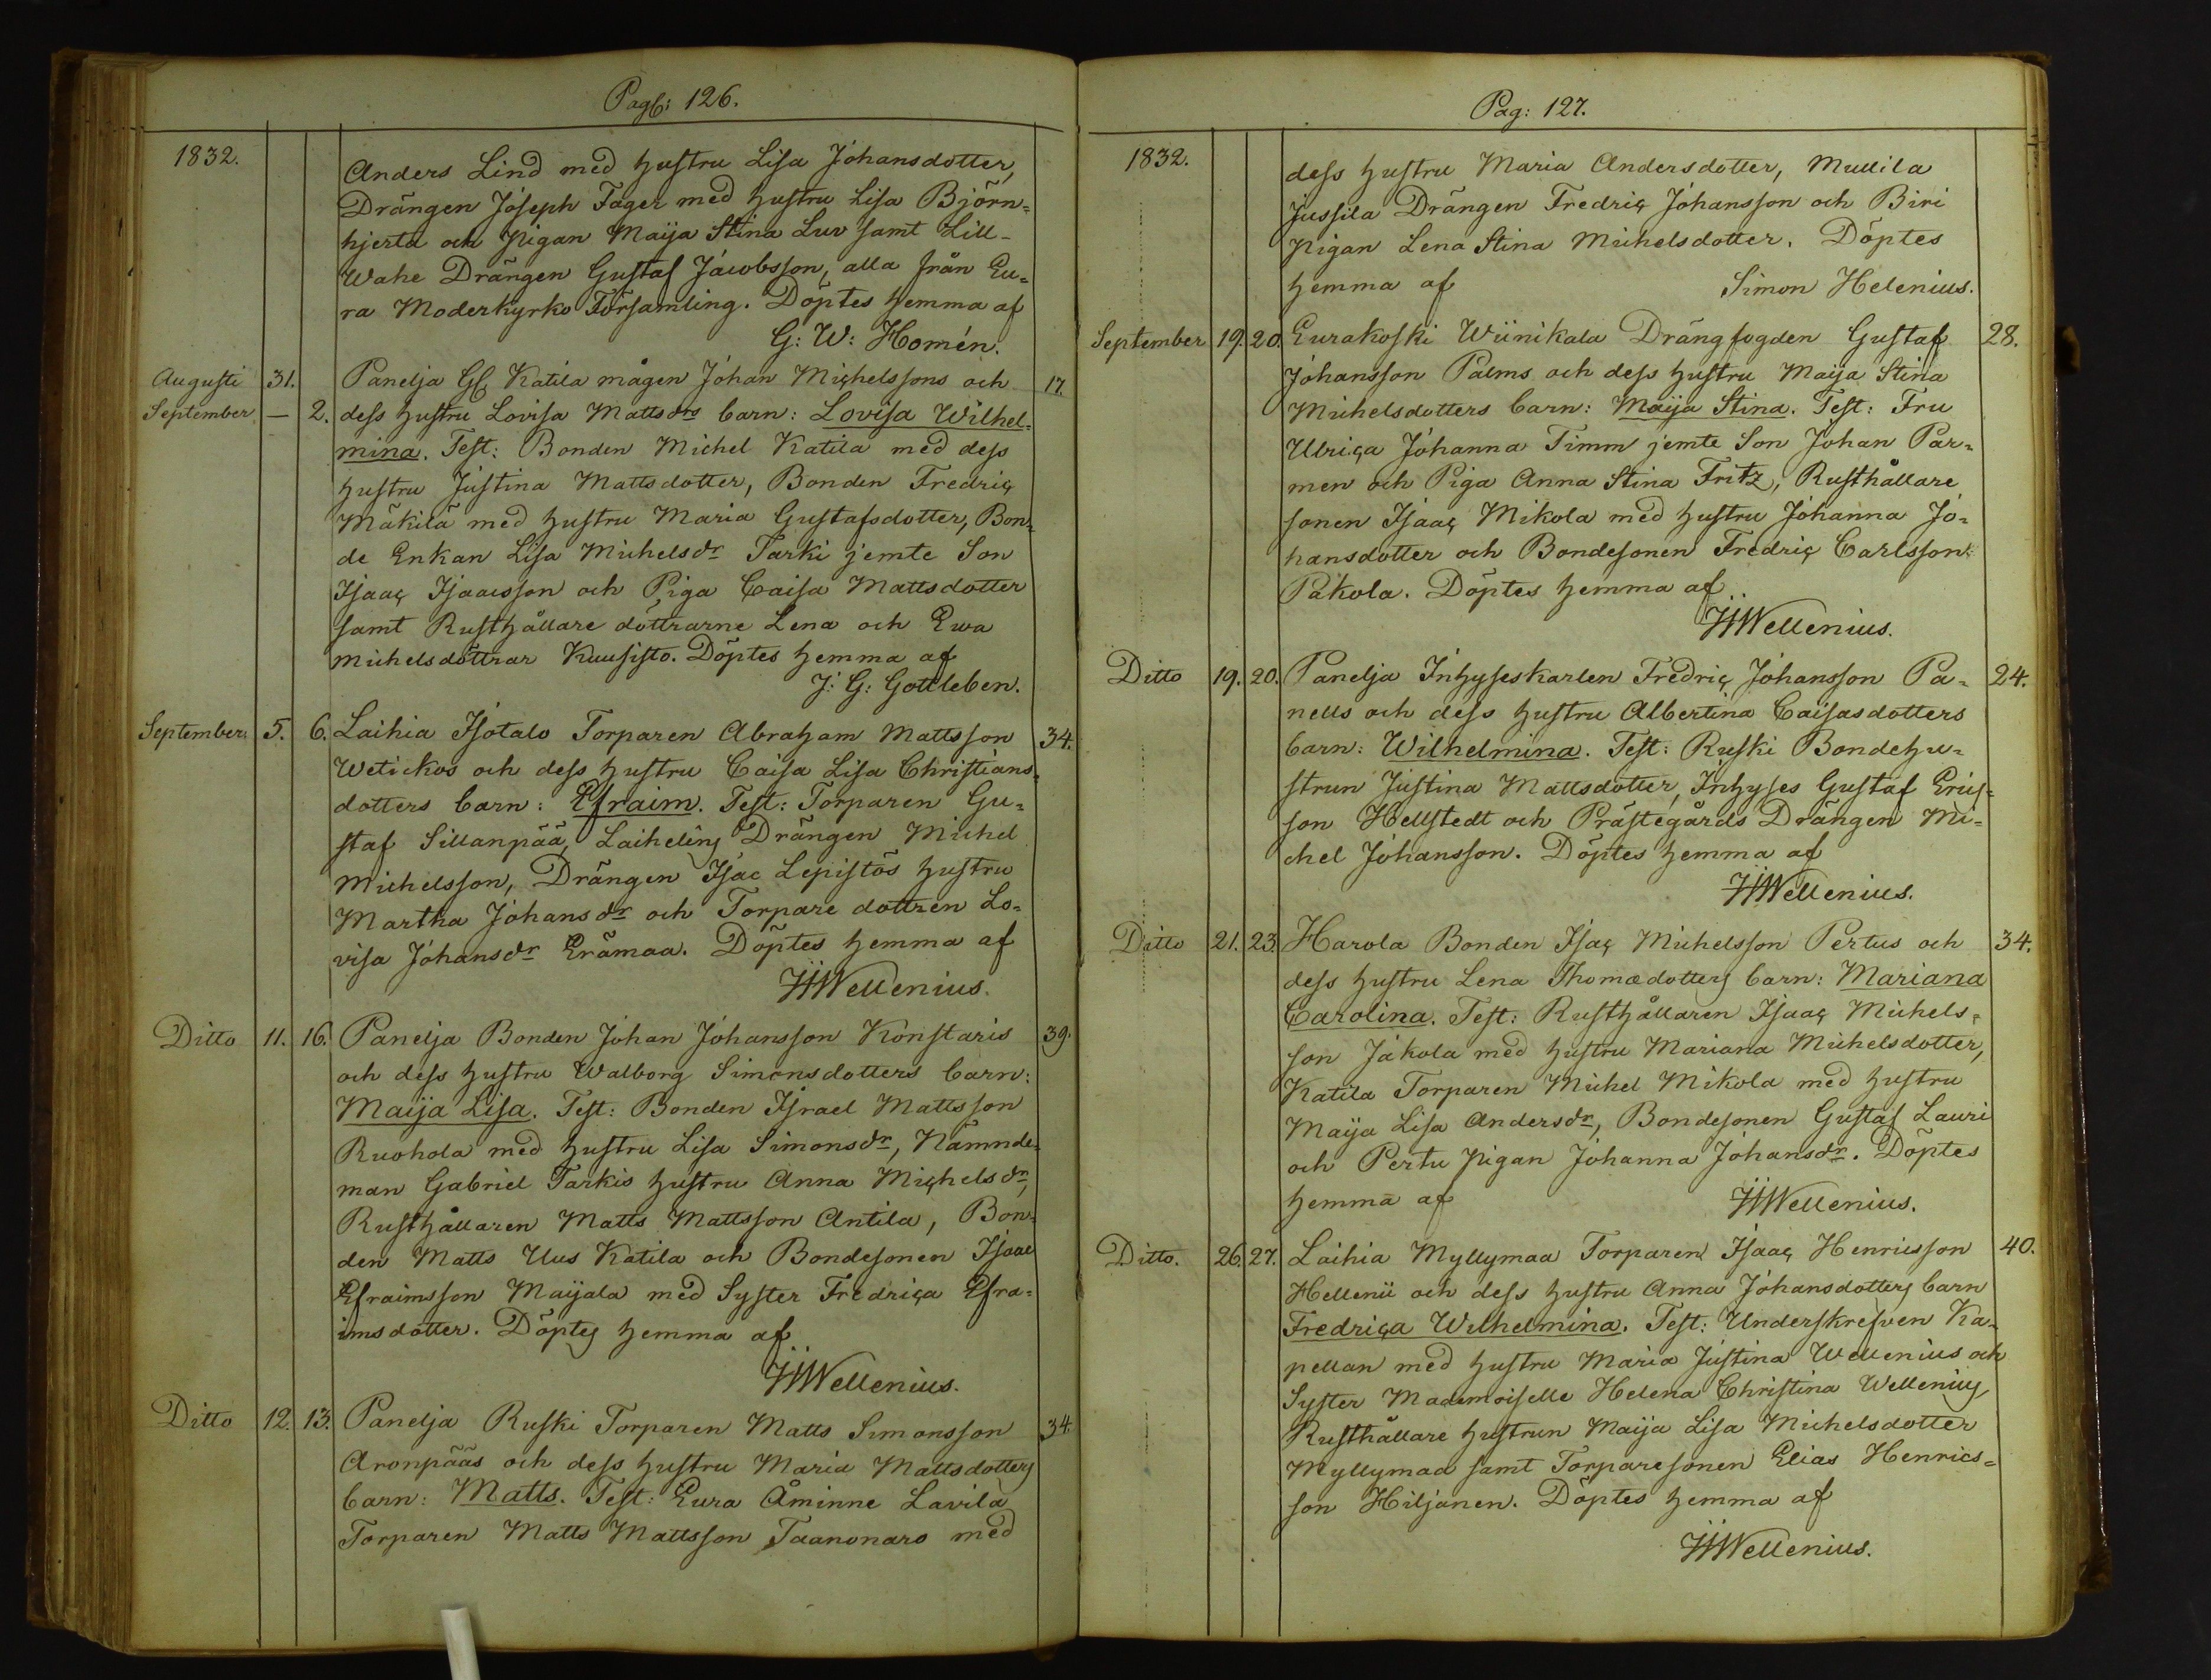 Pag: 126.
1832.
Anders Lind med hustru Lisa Johansdotter,
Drängen Joseph Fager med hustru Lisa Björn=
hjerta och pigan Maija Stina Luv samt Lill-
Wahe Drängen Gustaf Jacobsson, alla från Eu=
ra Moderkyrko Församling. Döptes hemma af
G: W: Homén.
Augusti 31. Panelja Gl. Katila mågen Johan Michelssons och 17.
September — 2. dess hustru Lovisa Mattsdrs barn: Lovisa Wilhel=
mina. Test: Bonden Michel Katila med dess
hustru Justina Mattsdotter, Bonden Fredric
Mäkilä med hustru Maria Gustafsdotter, Bon=
de Enkan Lisa Michelsdr Tarki jemte Son
Isaac Isaacsson och Piga Caisa Mattsdotter
samt Rusthållare döttrarne Lena och Ewa
Michelsdöttrar Kuusisto. Döptes hemma af
J: G: Gottleben.
September. 5. 6. Laihia Isotalo Torparen Abraham Mattsson 34.
Wetickos och dess hustru Caisa Lisa Christians=
dotters barn: Efraim. Test: Torparen Gu=
staf Sillanpää, Laihelins Drängen Michel
Michelsson, Drängen Isac Lepistös hustru
Martha Johansdr och Torpare dottren Lo=
visa Johansdr Erämaa. Döptes hemma af
JJWellenius.
Ditto 11. 16. Panelja Bonden Johan Johansson Konstaris 39.
och dess hustru Walborg Simonsdotters barn:
Maija Lisa. Test: Bonden Israel Mattsson
Ruohola med hustru Lisa Simonsdr, Nämnde=
man Gabriel Tarkis hustru Anna Michelsdr,
Rusthållaren Matts Mattsson Antila, Bon=
den Matts Uus Katila och Bondesonen Isaac
Efraimsson Maijala med Syster Fredrica Efra=
imsdotter. Döptes hemma af
JJWellenius.
Ditto 12. 13. Panelja Ruski Torparen Matts Simonsson 34.
Aronpääs och dess hustru Maria Mattsdotters
barn: Matts. Test: Eura Åminne Lavila
Torparen Matts Mattsson Taanonaro med
Pag: 127.
1832.
dess hustru Maria Andersdotter, Mullila
Jussila Drängen Fredric Johansson och Biri
pigan Lena Stina Michelsdotter. Döptes
hemma af Simon Helenius.
September 19. 20. Eurakoski Wiinikala Drängfogden Gustaf 28.
Johansson Palms och dess hustru Maija Stina
Michelsdotters barn: Maija Stina. Test: Fru
Ulrica Johanna Timm jemte Son Johan Par=
men och Piga Anna Stina Fritz, Rusthållare
sonen Isaac Mikola med hustru Johanna Jo=
hansdotter och Bondesonen Fredric Carlsson
Pakola. Döptes hemma af
JJWellenius.
Ditto 19. 20. Panelja Inhyseskarlen Fredric Johansson Pa= 24.
nells och dess hustru Albertina Caisasdotters
barn: Wilhelmina. Test: Ruski Bondehu=
strun Justina Mattsdotter, Inhyses Gustaf Erics=
son Hellstedt och Prästegårds Drängen Mi=
chel Johansson. Döptes hemma af
JJWellenius.
Ditto 21. 23. Harola Bonden Isac Michelsson Pertus och 34.
dess hustru Lena Thomædotters barn: Mariana
Carolina. Test: Rusthållaren Isaac Michels=
son Jakola med hustru Mariana Michelsdotter,
Katila Torparen Michel Mikola med hustru
Maija Lisa Andersdr, Bondesonen Gustaf Lauri
och Pertu pigan Johanna Johansdr. Döptes
hemma af JJWellenius.
Ditto. 26. 27. Laihia Myllymaa Torparen Isaac Henricsson 40.
Hellenii och dess hustru Anna Johansdotters barn
Fredrica Wilhelmina. Test: Underskrefven Ka=
pellan med hustru Maria Justina Wellenius och
Syster Mademoiselle Helena Christina Wellenius,
Rusthållare hustrun Maija Lisa Michelsdotter
Myllymaa samt Torparesonen Elias Henrics=
son Hiljanen. Döptes hemma af
JJWellenius.